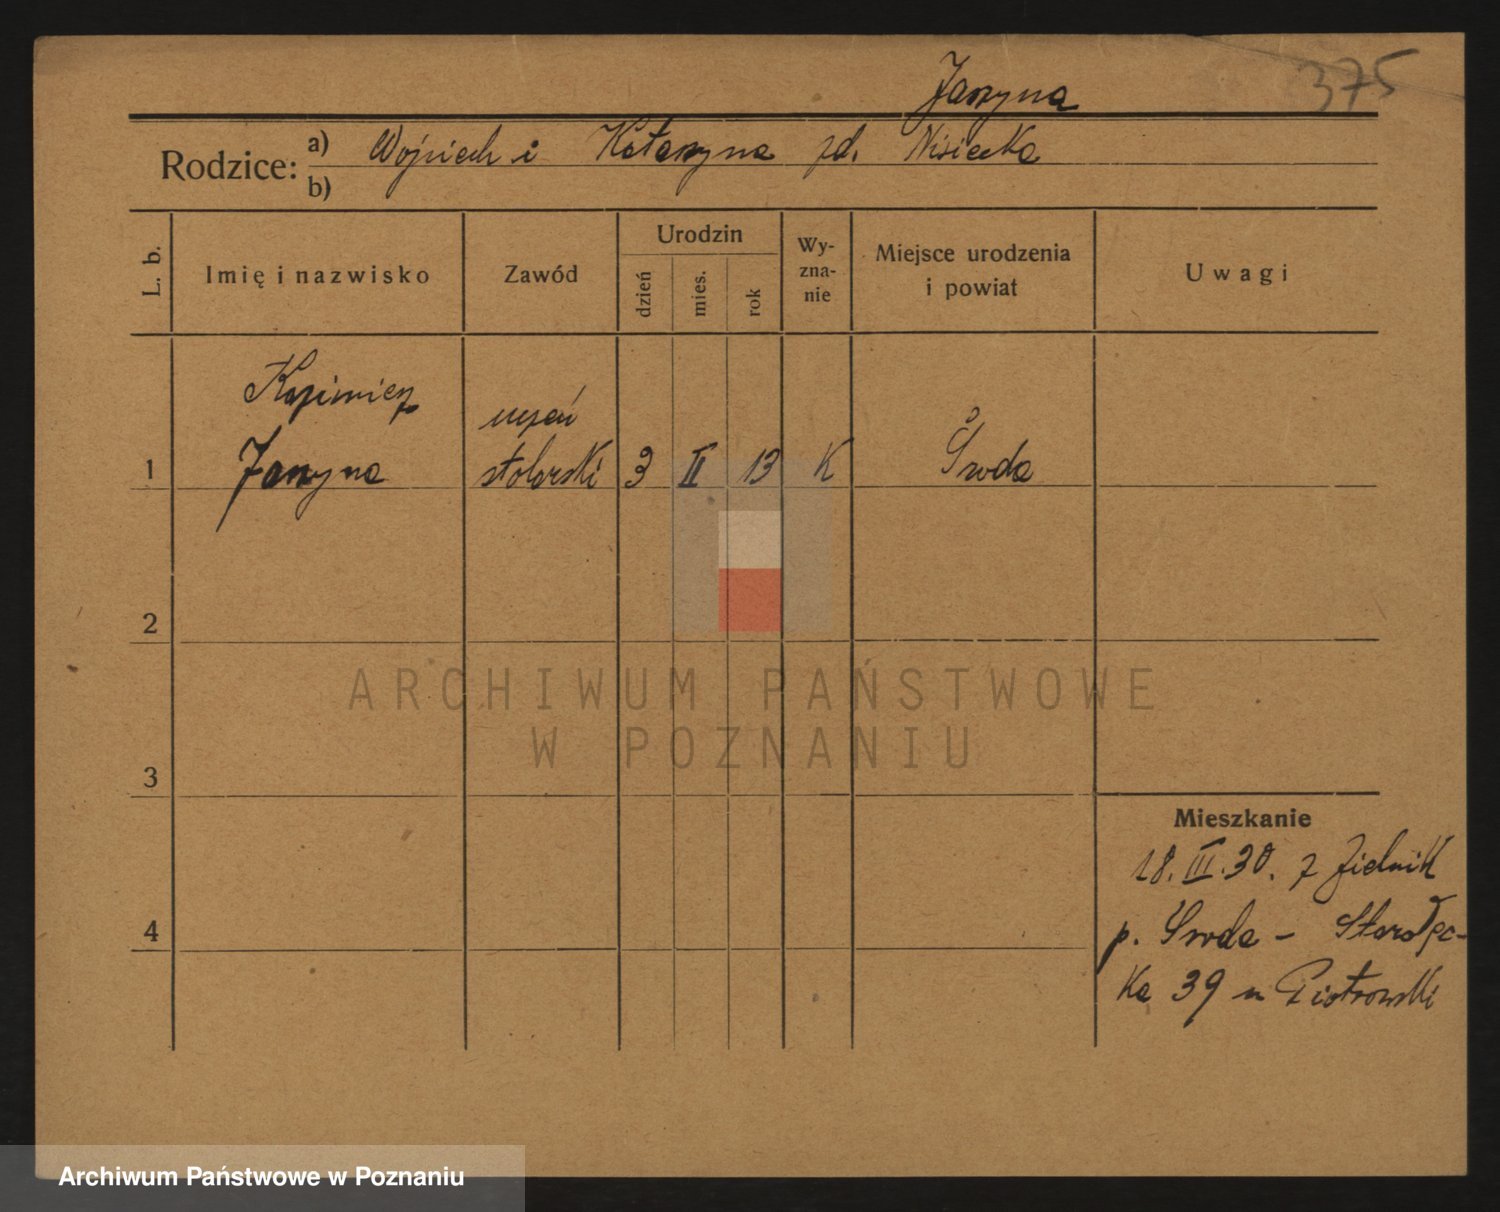 Jaszyna
375
Rodzice:
a) Wojciech i Katarzyna zd. Nisiecka
b)
L. b.
Imię i nazwisko
Zawód
Urodzin
dzień
mies.
rok
Wy-
zna-
nie
Miejsce urodzenia
i powiat
Uwagi
Kazimierz
uczeń
1 Jaszyna stolarski 3 II 13 K Środa
2
3
4
Mieszkanie
18. III. 30. z Zielnik
p. Środa - Starołęc-
ka 39 u Piotrowski
ARCHIWUM PAŃSTWOWE
W POZNANIU
Archiwum Państwowe w Poznaniu